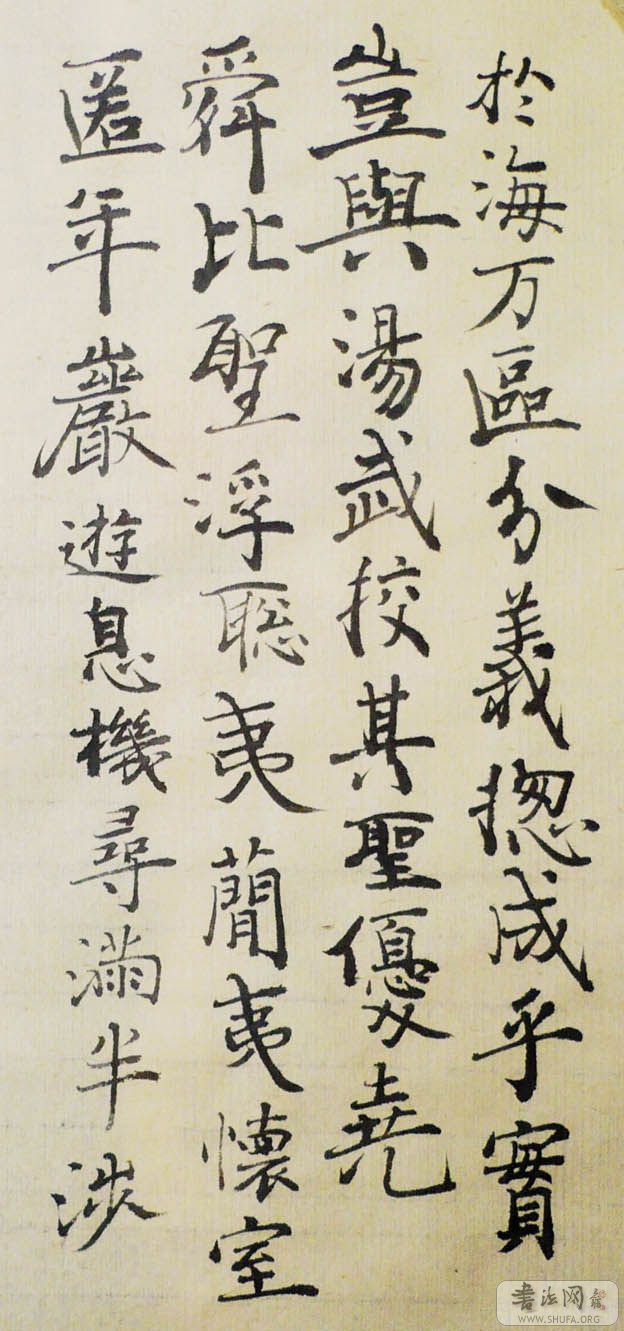 於海万区分義揔成乎實
豈與湯武挍其聖優堯
舜比聖浮聡夷蕳夷懐室
匿年巖遊息機尋滿半涉
書法网
WWW.SHUFA.ORG